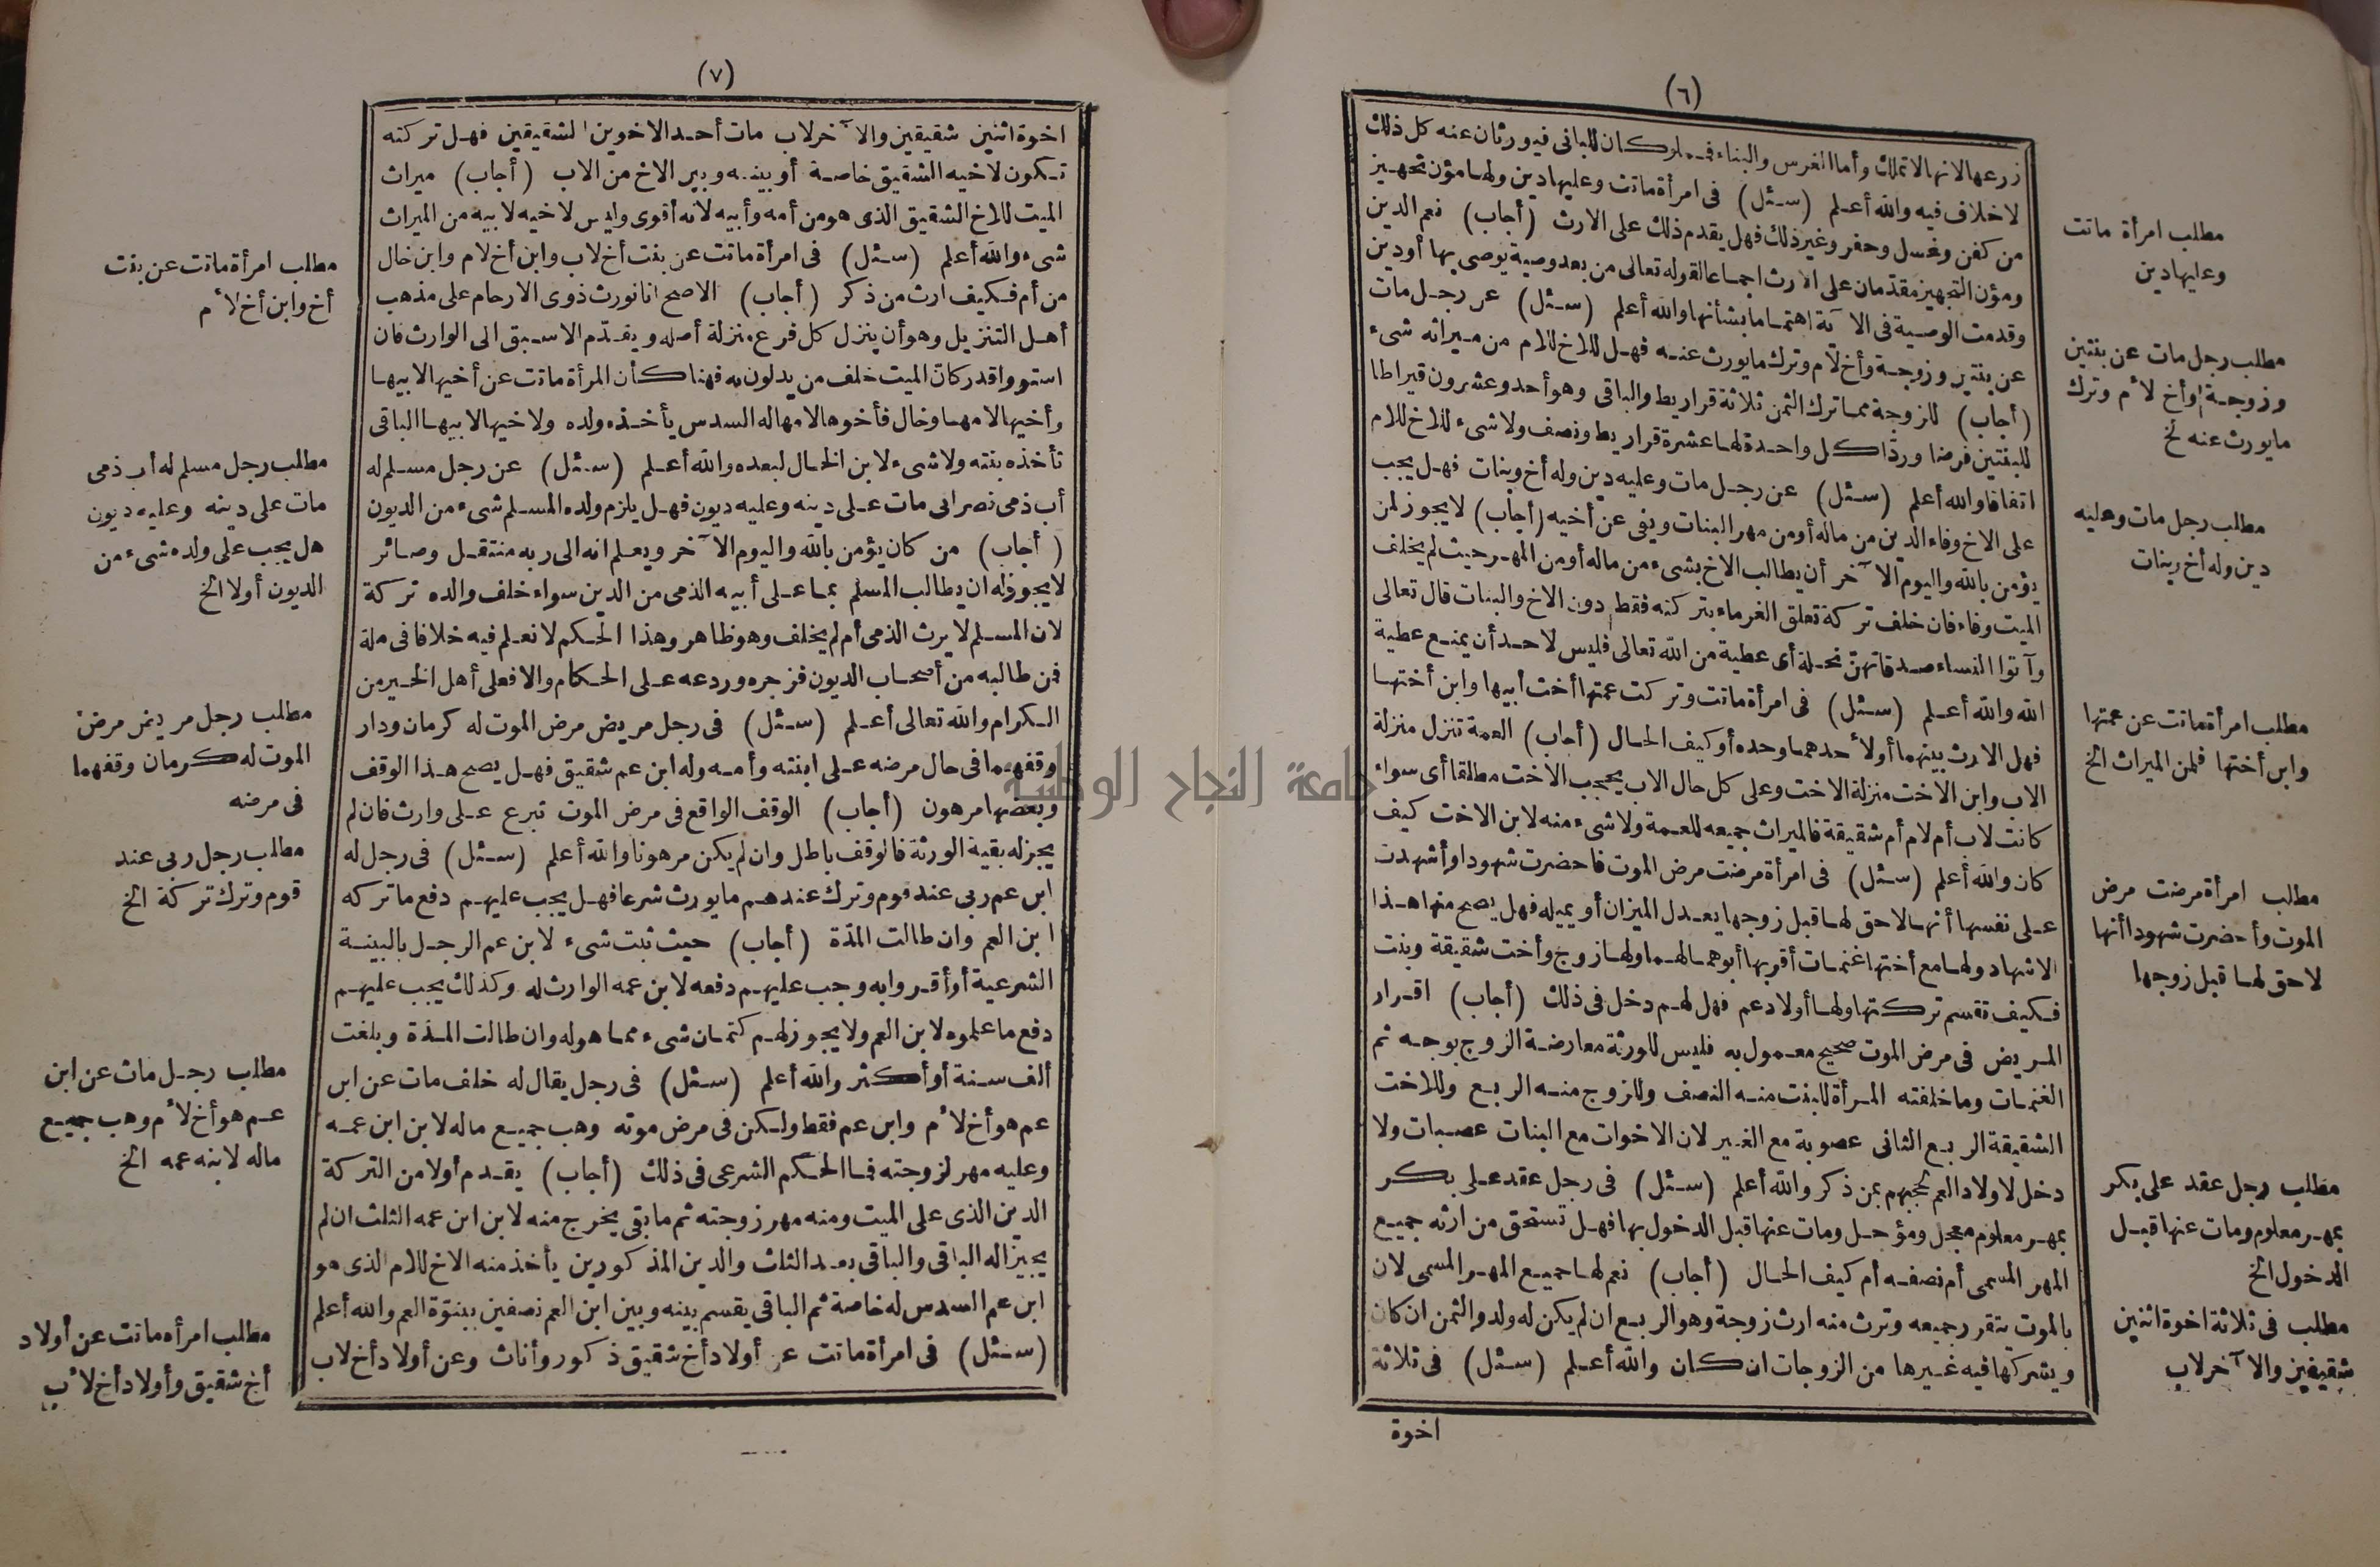 (٦)
زرعها لانها لا تملك وأما الغرس والبناء فمملوك كان للبانى فيورثان عنه كل ذلك
لا خلاف فيه والله أعلم (سئل) فى امرأة ماتت وعليها دين ولها مؤن تجهيز
من كفن وغسل وحفر وغير ذلك فهل يقدم ذلك على الارث (أجاب) نعم الدين
ومؤن التجهيز مقدّمان على الارث اجماعا لقوله تعالى من بعد وصية يوصى بها أو دين
وقدمت الوصية فى الآية اهتماما بشأنها والله أعلم (سئل) عن رجل مات
عن بنتين وزوجة وأخ لأم وترك مايورث عنه فهل للاخ للام من ميراثه شىء
(أجاب) للزوجة مما ترك الثمن ثلاثة قراريط والباقى وهو أحد وعشرون قيراطا
للبنتين فرضا وردّا كل واحدة لها عشرة قراريط ونصف ولا شىء للاخ للام
اتفاقا والله أعلم (سئل) عن رجل مات وعليه دين وله أخ وبنات فهل يجب
على الاخ وفاء الدين من ماله أو من مهر البنات ويفى عن أخيه (أجاب) لا يجوز لمن
يؤمن بالله واليوم الآخر أن يطالب الاخ بشىء من ماله أو من المهر حيث لم يخلف
الميت وفاء فان خلف تركة تعلق الغرماء بتركته فقط دون الاخ والبنات قال تعالى
وآتوا النساء صدقاتهنّ نحلة أى عطية من الله تعالى فليس لاحد أن يمنع عطية
الله والله أعلم (سئل) فى امرأة ماتت وتركت عمتها أخت أبيها وابن أختها
فهل الارث بينهما أو لأحدهما وحده أو كيف الحال (أجاب) العمة تنزل منزلة
الاب وابن الاخت منزلة الاخت وعلى كل حال الاب يحجب الاخت مطلقا أى سواء
كانت لاب أم لام أم شقيقة فالميراث جميعه للعمة ولا شىء منه لابن الاخت كيف
كان والله أعلم (سئل) فى امرأة مرضت مرض الموت فاحضرت شهودا وأشهدت
على نفسها أنها لا حق لها قبل زوجها يعدل الميزان أو يميله فهل يصح منها هذا
الاشهاد ولها مع أختها غنمات أقر بها أبوهما لهما ولها زوج وأخت شقيقة وبنت
فكيف تقسم تركتها ولها أولاد عم فهل لهم دخل فى ذلك (أجاب) اقرار
المريض فى مرض الموت صحيح معمول به فليس للورثة معارضة الزوج بوجه ثم
الغنمات وما خلفته المرأة للبنت منه النصف وللزوج منه الربع وللاخت
الشقيقة الربع الثانى عصوبة مع الغير لان الاخوات مع البنات عصبات ولا
دخل لاولاد العم لحجبهم بمن ذكر والله أعلم (سئل) فى رجل عقد على بكر
بمهر معلوم معجل ومؤجل ومات عنها قبل الدخول بها فهل تستحق من ارثه جميع
المهر المسمى أم نصفه أم كيف الحال (أجاب) نعم لها جميع المهر المسمى لان
بالموت يتقرر جميعه وترث منه ارث زوجة وهو الربع ان لم يكن له ولد والثمن ان كان
ويشركها فيه غيرها من الزوجات ان كان والله أعلم (سئل) فى ثلاثة
اخوة
مطلب امرأة ماتت
وعليها دين
مطلب رجل مات عن بنتين
وزوجة وأخ لأم وترك
مايورث عنه الخ
مطلب رجل مات وعليه
دين وله أخ وبنات
مطلب امرأة ماتت عن عمتها
وابن أختها فلمن الميراث الخ
مطلب امرأة مرضت مرض
الموت وأحضرت شهودا أنها
لا حق لها قبل زوجها
مطلب رجل عقد على بكر
بمهر معلوم ومات عنها قبل
الدخول الخ
مطلب فى ثلاثة اخوة اثنين
شقيقين والآخر لاب
(٧)
اخوة اثنين شقيقين والآخر لاب مات أحد الاخوين الشقيقين فهل تركته
تكون لاخيه الشقيق خاصة أو بينه وبين الاخ من الاب (أجاب) ميراث
الميت للاخ الشقيق الذى هو من أمه وأبيه لانه أقوى وليس لاخيه لابيه من الميراث
شىء والله أعلم (سئل) فى امرأة ماتت عن بنت أخ لاب وابن أخ لام وابن خال
من أم فكيف ارث من ذكر (أجاب) الاصح انا نورث ذوى الارحام على مذهب
أهل التنزيل وهو أن ينزل كل فرع منزلة أصله ويقدّم الاسبق الى الوارث فان
استووا قدر كأن الميت خلف من يدلون به فهنا كأن المرأة ماتت عن أخيها لابيها
وأخيها لامها وخال فأخوها لامها له السدس يأخذه ولده ولاخيها لابيها الباقى
تأخذه بنته ولا شىء لابن الخال لبعده والله أعلم (سئل) عن رجل مسلم له
أب ذمى نصرانى مات على دينه وعليه ديون فهل يلزم ولده المسلم شىء من الديون
(أجاب) من كان يؤمن بالله واليوم الآخر ويعلم انه الى ربه منتقل وصائر
لا يجوز له ان يطالب المسلم بما على أبيه الذمى من الدين سواء خلف والده تركة
لان المسلم لا يرث الذمى أم لم يخلف وهو ظاهر وهذا الحكم لا نعلم فيه خلافا فى ملة
فمن طالبه من أصحاب الديون فزجره وردعه على الحكام والا فعلى أهل الخير من
الكرام والله تعالى أعلم (سئل) فى رجل مريض مرض الموت له كرمان ودار
وقفهما فى حال مرضه على ابنته وأمه وله ابن عم شقيق فهل يصح هذا الوقف
وبعضها مرهون (أجاب) الوقف الواقع فى مرض الموت تبرع على وارث فان لم
يجزله بقية الورثة فالوقف باطل وان لم يكن مرهونا والله أعلم (سئل) فى رجل له
ابن عم ربى عند قوم وترك عندهم مايورث شرعا فهل يجب عليهم دفع ما تركه
ابن العم وان طالت المدّة (أجاب) حيث ثبت شىء لابن عم الرجل بالبينة
الشرعية أو أقروا به وجب عليهم دفعه لابن عمه الوارث له وكذلك يجب عليهم
دفع ما علموه لابن العم ولا يجوز لهم كتمان شىء مما هو له وان طالت المدّة وبلغت
ألف سنة أو أكثر والله أعلم (سئل) فى رجل يقال له خلف مات عن ابن
عم هو أخ لأم وابن عم فقط ولكن فى مرض موته وهب جميع ماله لابن ابن عمه
وعليه مهر لزوجته فما الحكم الشرعى فى ذلك (أجاب) يقدم أولا من التركة
الدين الذى على الميت ومنه مهر زوجته ثم ما بقى يخرج منه لابن ابن عمه الثلث ان لم
يجيزا له الباقى والباقى بعد الثلث والدين المذكورين يأخذ منه الاخ للام الذى هو
ابن عم السدس له خاصة ثم الباقى يقسم بينه وبين ابن العم نصفين ببنوّة العم والله أعلم
(سئل) فى امرأة ماتت عن أولاد أخ شقيق ذكور وأناث وعن أولاد أخ لاب
مطلب امرأة ماتت عن بنت
أخ وابن أخ لأم
مطلب رجل مسلم له أب ذمى
مات على دينه وعليه ديون
هل يجب على ولده شىء من
الديون أولا الخ
مطلب رجل مريض مرض
الموت له كرمان وقفهما
فى مرضه
مطلب رجل ربى عند
قوم وترك تركة الخ
مطلب رجل مات عن ابن
عم هو أخ لأم وهب جميع
ماله لابنه عمه الخ
مطلب امرأة ماتت عن أولاد
أخ شقيق وأولاد أخ لأب
جامعة النجاح الوطنية